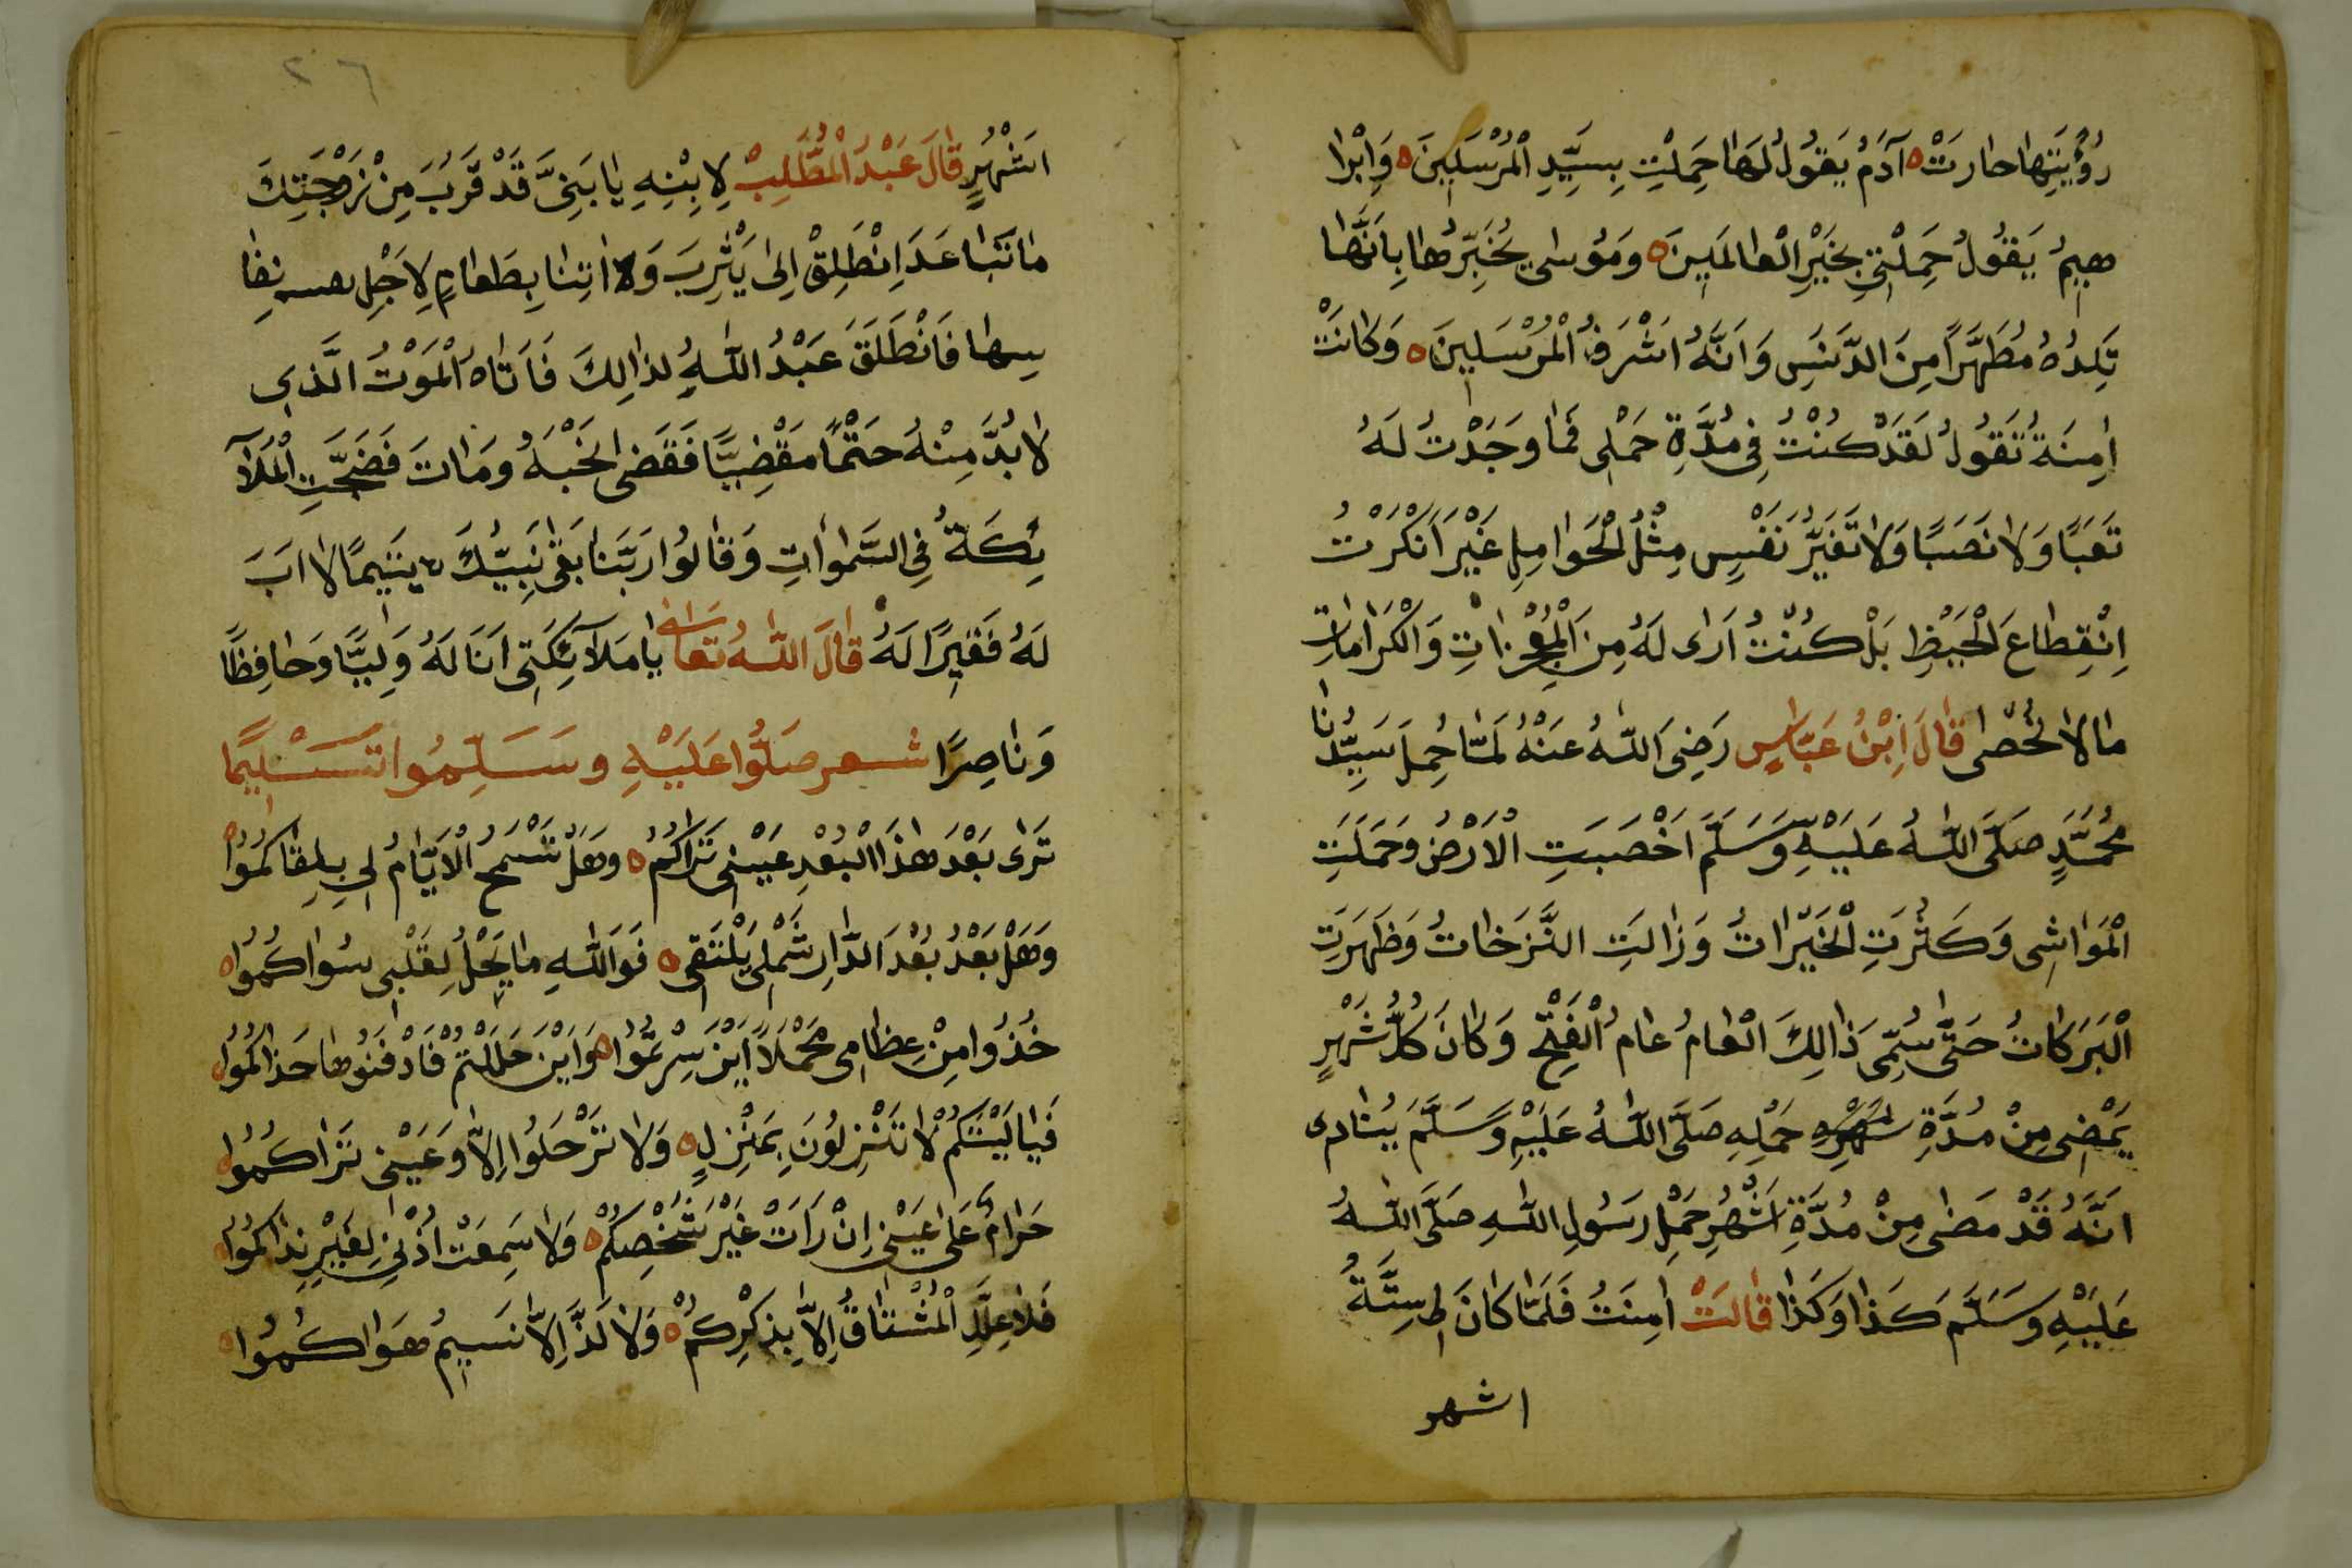 رُؤْيَتِهَا حَارَتْ ه آدَمُ يَقُولُ لَهَا حَمَلْتِ بِسَيِّدِ الْمُرْسَلِينَ ه وَاِبْرَا
هِيمُ يَقُولُ حَمَلْتِي بِخَيْرِ الْعَالَمِينَ ه وَمُوسَى يُخَبِّرُهَا بِاَنَّهَا
تَلِدُهُ مُطَهَّرًا مِنَ الدَّنَسِ وَاَنَّهُ اَشْرَفُ الْمُرْسَلِينَ ه وَكَانَتْ
اٰمِنَةُ تَقُولُ لَقَدْ كُنْتُ فِي مُدَّةِ حَمْلِي فَمَا وَجَدْتُ لَهُ
تَعَبًا وَلَا نَصَبًا وَلَا تَغَيَّرُ نَفْسٍ مِثْلُ الْحَوَامِلِ غَيْرَ اَنْكَرْتُ
اِنْقِطَاعَ الْحَيْظِ بَلْ كُنْتُ اَرَى لَهُ مِنَ الْمُعْجِزَاتِ وَالْكَرَامَاتِ
مَا لَا تُحْصَى قَالَ اِبْنُ عَبَّاسٍ رَضِىَ اللّٰهُ عَنْهُ لَمَّا حُمِلَ سَيِّدُنَا
مُحَمَّدٍ صَلَّى اللّٰهُ عَلَيْهِ وَسَلَّمَ اَخْصَبَتِ الْاَرْضُ وَحَمَلَتِ
الْمَوَاشِى وَكَثُرَتِ الْخَيْرَاتُ وَزَالَتِ النَّزَخَاتُ وَظَهَرَتِ
الْبَرَكَاتُ حَتَّى سُمِّىَ ذَالِكَ الْعَامُ عَامُ الْفَتْحِ وَكَانَ كُلُّ شَهْرٍ
يَمْضِى مِنْ مُدَّةِ حَمْلِهِ صَلَّى اللّٰهُ عَلَيْهِ وَسَلَّمَ يُنَادِى
اَنَّهُ قَدْ مَضَى مِنْ مُدَّةِ اَشْهُرِ حَمْلِ رَسُولِ اللّٰهِ صَلَّى اللّٰهُ
عَلَيْهِ وَسَلَّمَ كَذَا وَكَذَا قَالَتْ اٰمِنَتُ فَلَمَّا كَانَ لِى سِتَّةُ
اشهر
٢٦
اَشْهُرٍ قَالَ عَبْدُ الْمُطَّلِبْ لِابْنِهِ يَا بَنِيَّ قَدْ قَرُبَ مِنْ زَوْجَتِكَ
مَا تَبَاعَدَ اِنْطَلِقْ اِلَى يَثْرِبَ وَلَا اتِنَا بِطَعَامٍ لِاَجْلِ نفا
سها فَانْطَلَقَ عَبْدُ اللّٰهِ لِذَالِكَ فَاَتَاهُ الْمَوْتُ الَّذِى
لَا بُدَّ مِنْهُ حَتْمًا مَقْضِيًّا فَقَضَى نَحْبَهُ وَمَاتَ فَضَجَّتِ الْمَلَآ
ئِكَةُ فِي السَّمٰوَاتِ وَقَالُوا رَبَّنَا بَقِىَ نَبِيُّكَ يَتِيمًا لَا اَبَ
لَهُ فَقِيرًا لَهُ قَالَ اللّٰهُ تَعَالٰى يَا مَلَآئِكَتِى اَنَا لَهُ وَلِيًّا وَحَافِظًا
وَنَاصِرًا شعر صَلُّوا عَلَيْهِ وَسَلِّمُوا تَسْلِيمًا
تَرَى بَعْدَ هٰذَا الْبُعْدِ عَيْنِى تَرَاكُمُ ه وَهَلْ تَسْمَحُ الْاَيَّامُ لِي بِلِقَاكُمُوا ه
وَهَلْ بَعْدُ بُعْدَ الدَّارِ شَمْلِى يَلْتَقِى ه فَوَاللّٰهِ مَا يَحْلُ لِقَلْبِى سُوَاكُمُوا ه
خُذُوا مِنْ عِظَامِى مَحْمَلًا اَيْنَ سِرْتُمُوا ه وَاَيْنَ حَلَلْتُمْ فَادْفَنُوهَا حَذَاكُمُوا
فَيَا لَيْتَكُمْ لَا تَنْزِلُونَ بِمَنْزِلٍ ه وَلَا تَرْحَلُوا اِلَّا وَعَيْنِى تَرَاكُمُوا ه
حَرَامٌ عَلَى عَيْنِى اِنْ رَاَتْ غَيْرَ شَخْصِكُمْ ه وَلَا سَمِعَتْ اُذْنِى لِغَيْرِ نِدَاكُمُوا ه
فَلَا عِلَلِ الْمُشْتَاقُ اِلَّا بِذِكْرِكُمْ ه وَلَا لَذَّ اِلَّا نَسِيمُ هَوَاكُمُوا ه